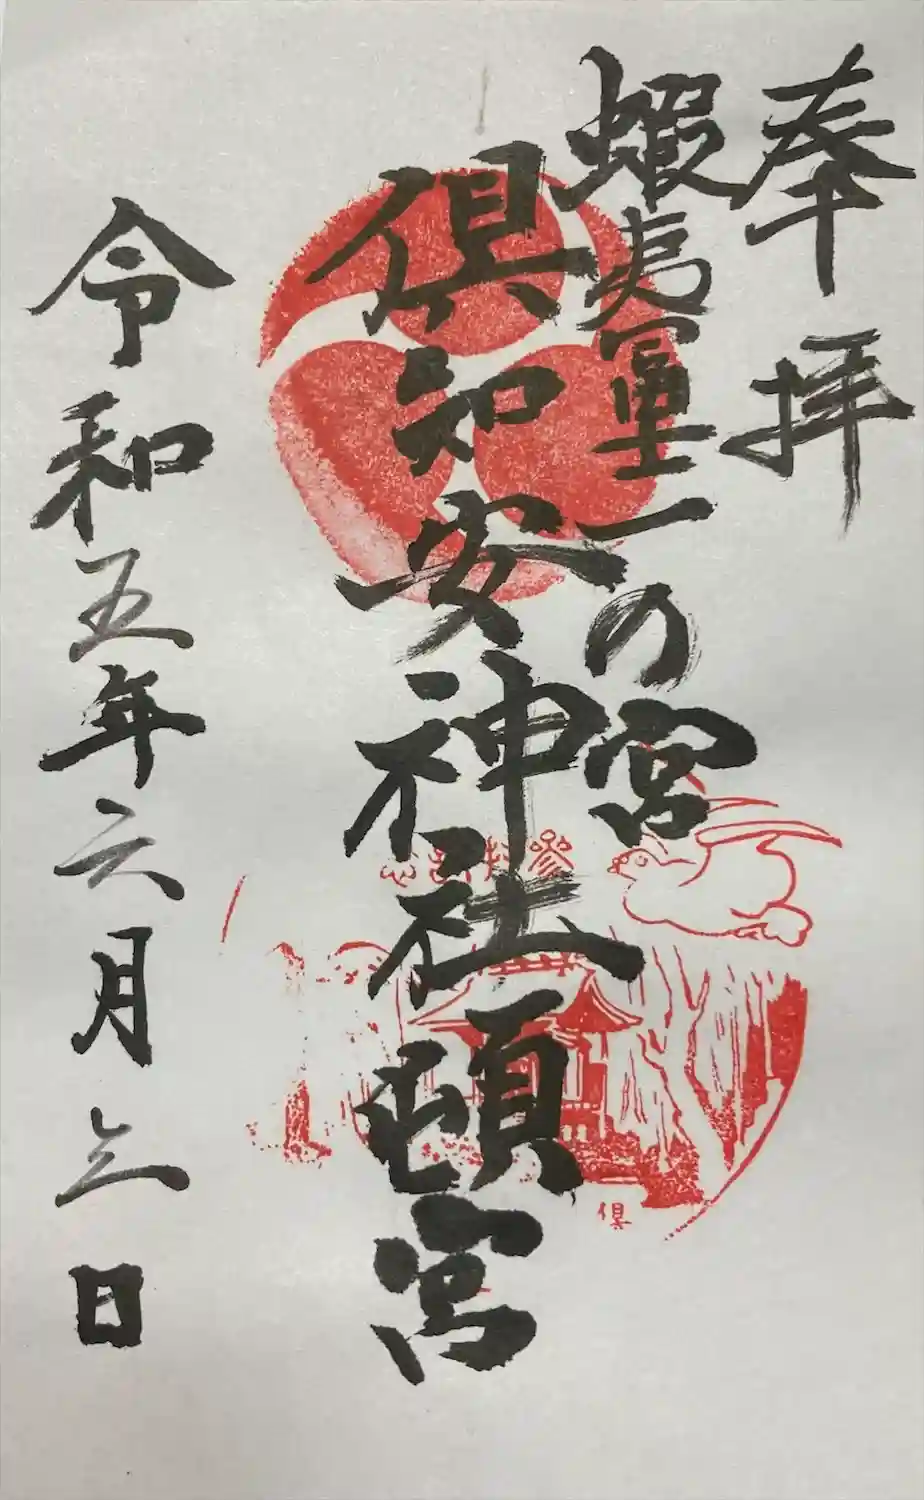 奉拝
蝦夷富士一の宮
倶知安神社頓宮
令和五年六月三日
倶